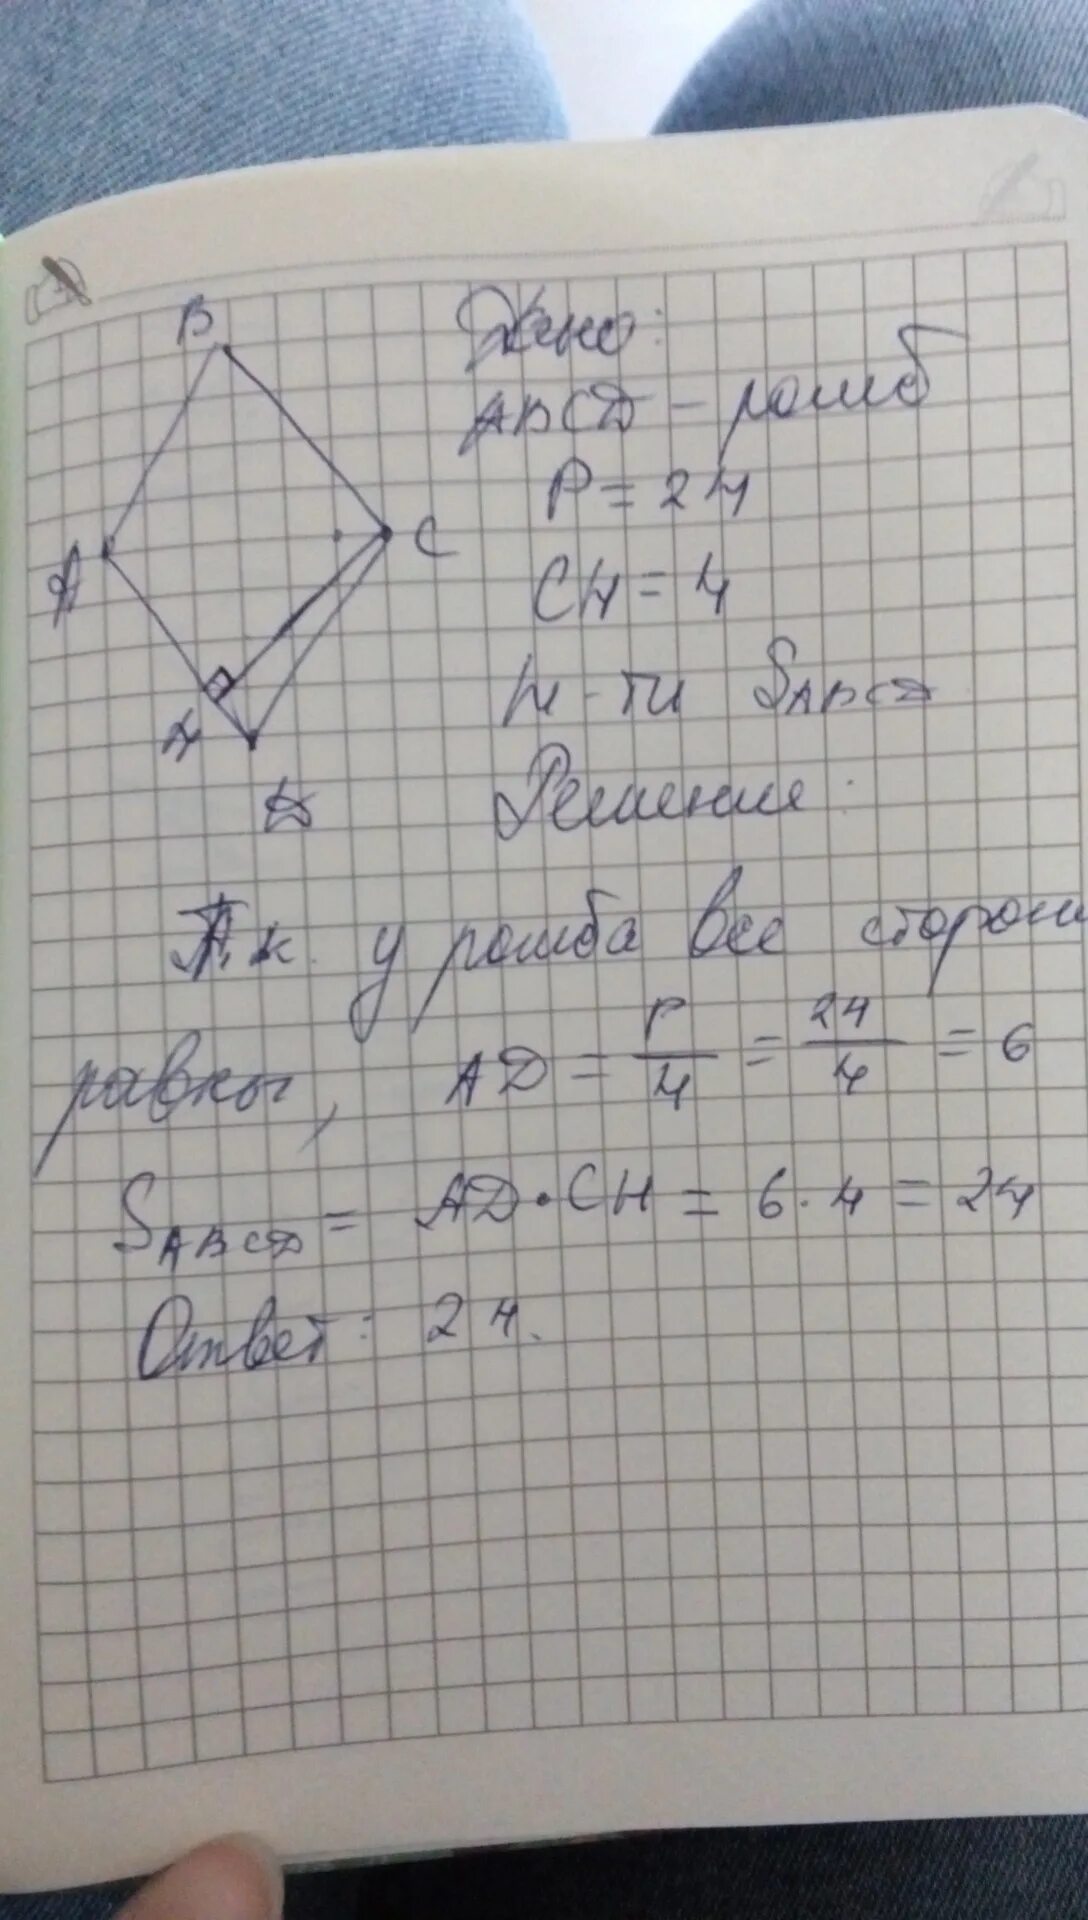 B
A
C
H
D
Дано:
ABCD - ромб
P = 24
CH = 4
Н-ти SABCD
Решение:
Т.к. у ромба все сторон
равны, AD = P/4 = 24/4 = 6
SABCD = AD · CH = 6 · 4 = 24
Ответ: 24.